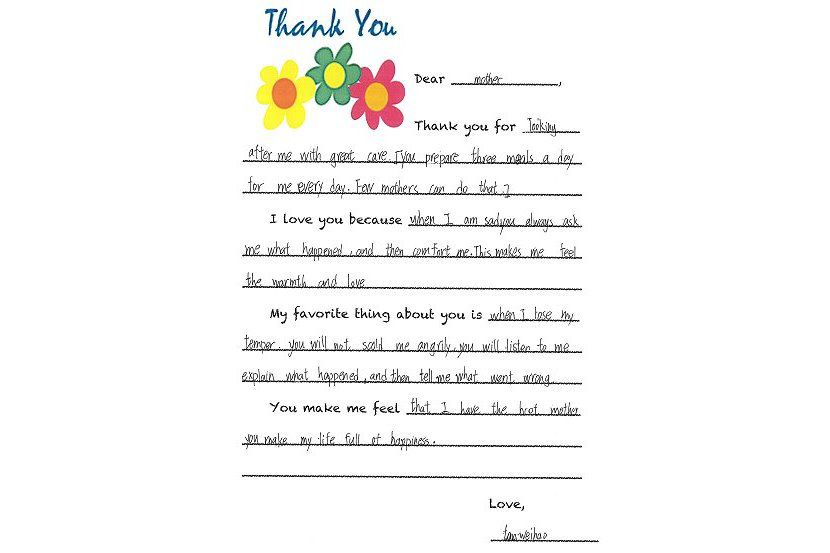 Thank You
Dear mother,
Thank you for looking
after me with great care. You prepare three meals a day
for me every day. Few mothers can do that
I love you because when I am sad, you always ask
me what happened, and then comfort me. This makes me feel
the warmth and love
My favorite thing about you is when I lose my
temper. you will not scold me angrily, you will listen to me
explain what happened, and then tell me what went wrong.
You make me feel that I have the best mother
you make my life full of happiness.
Love,
tan weihao